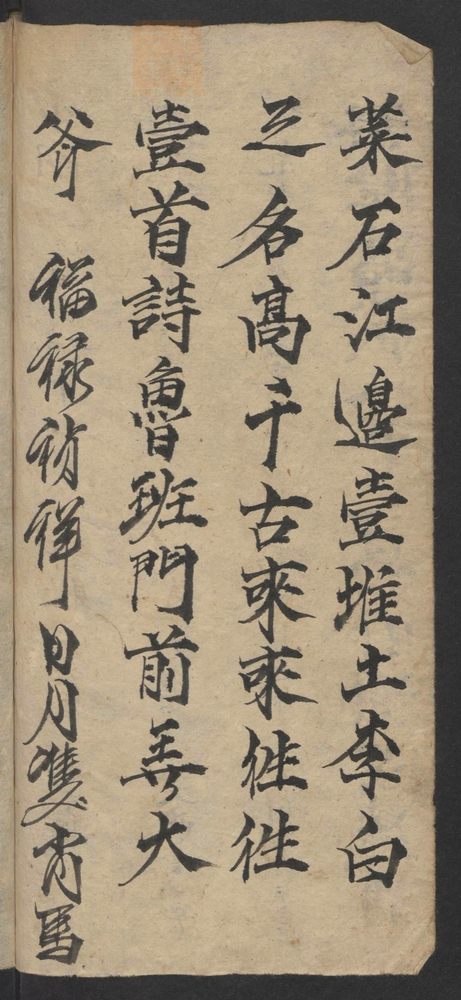 菜石江邊壹堆土李白
之名高千古來來徃徃
壹首詩魯班門前大
斧 福禄禎祥日月雙肖馬